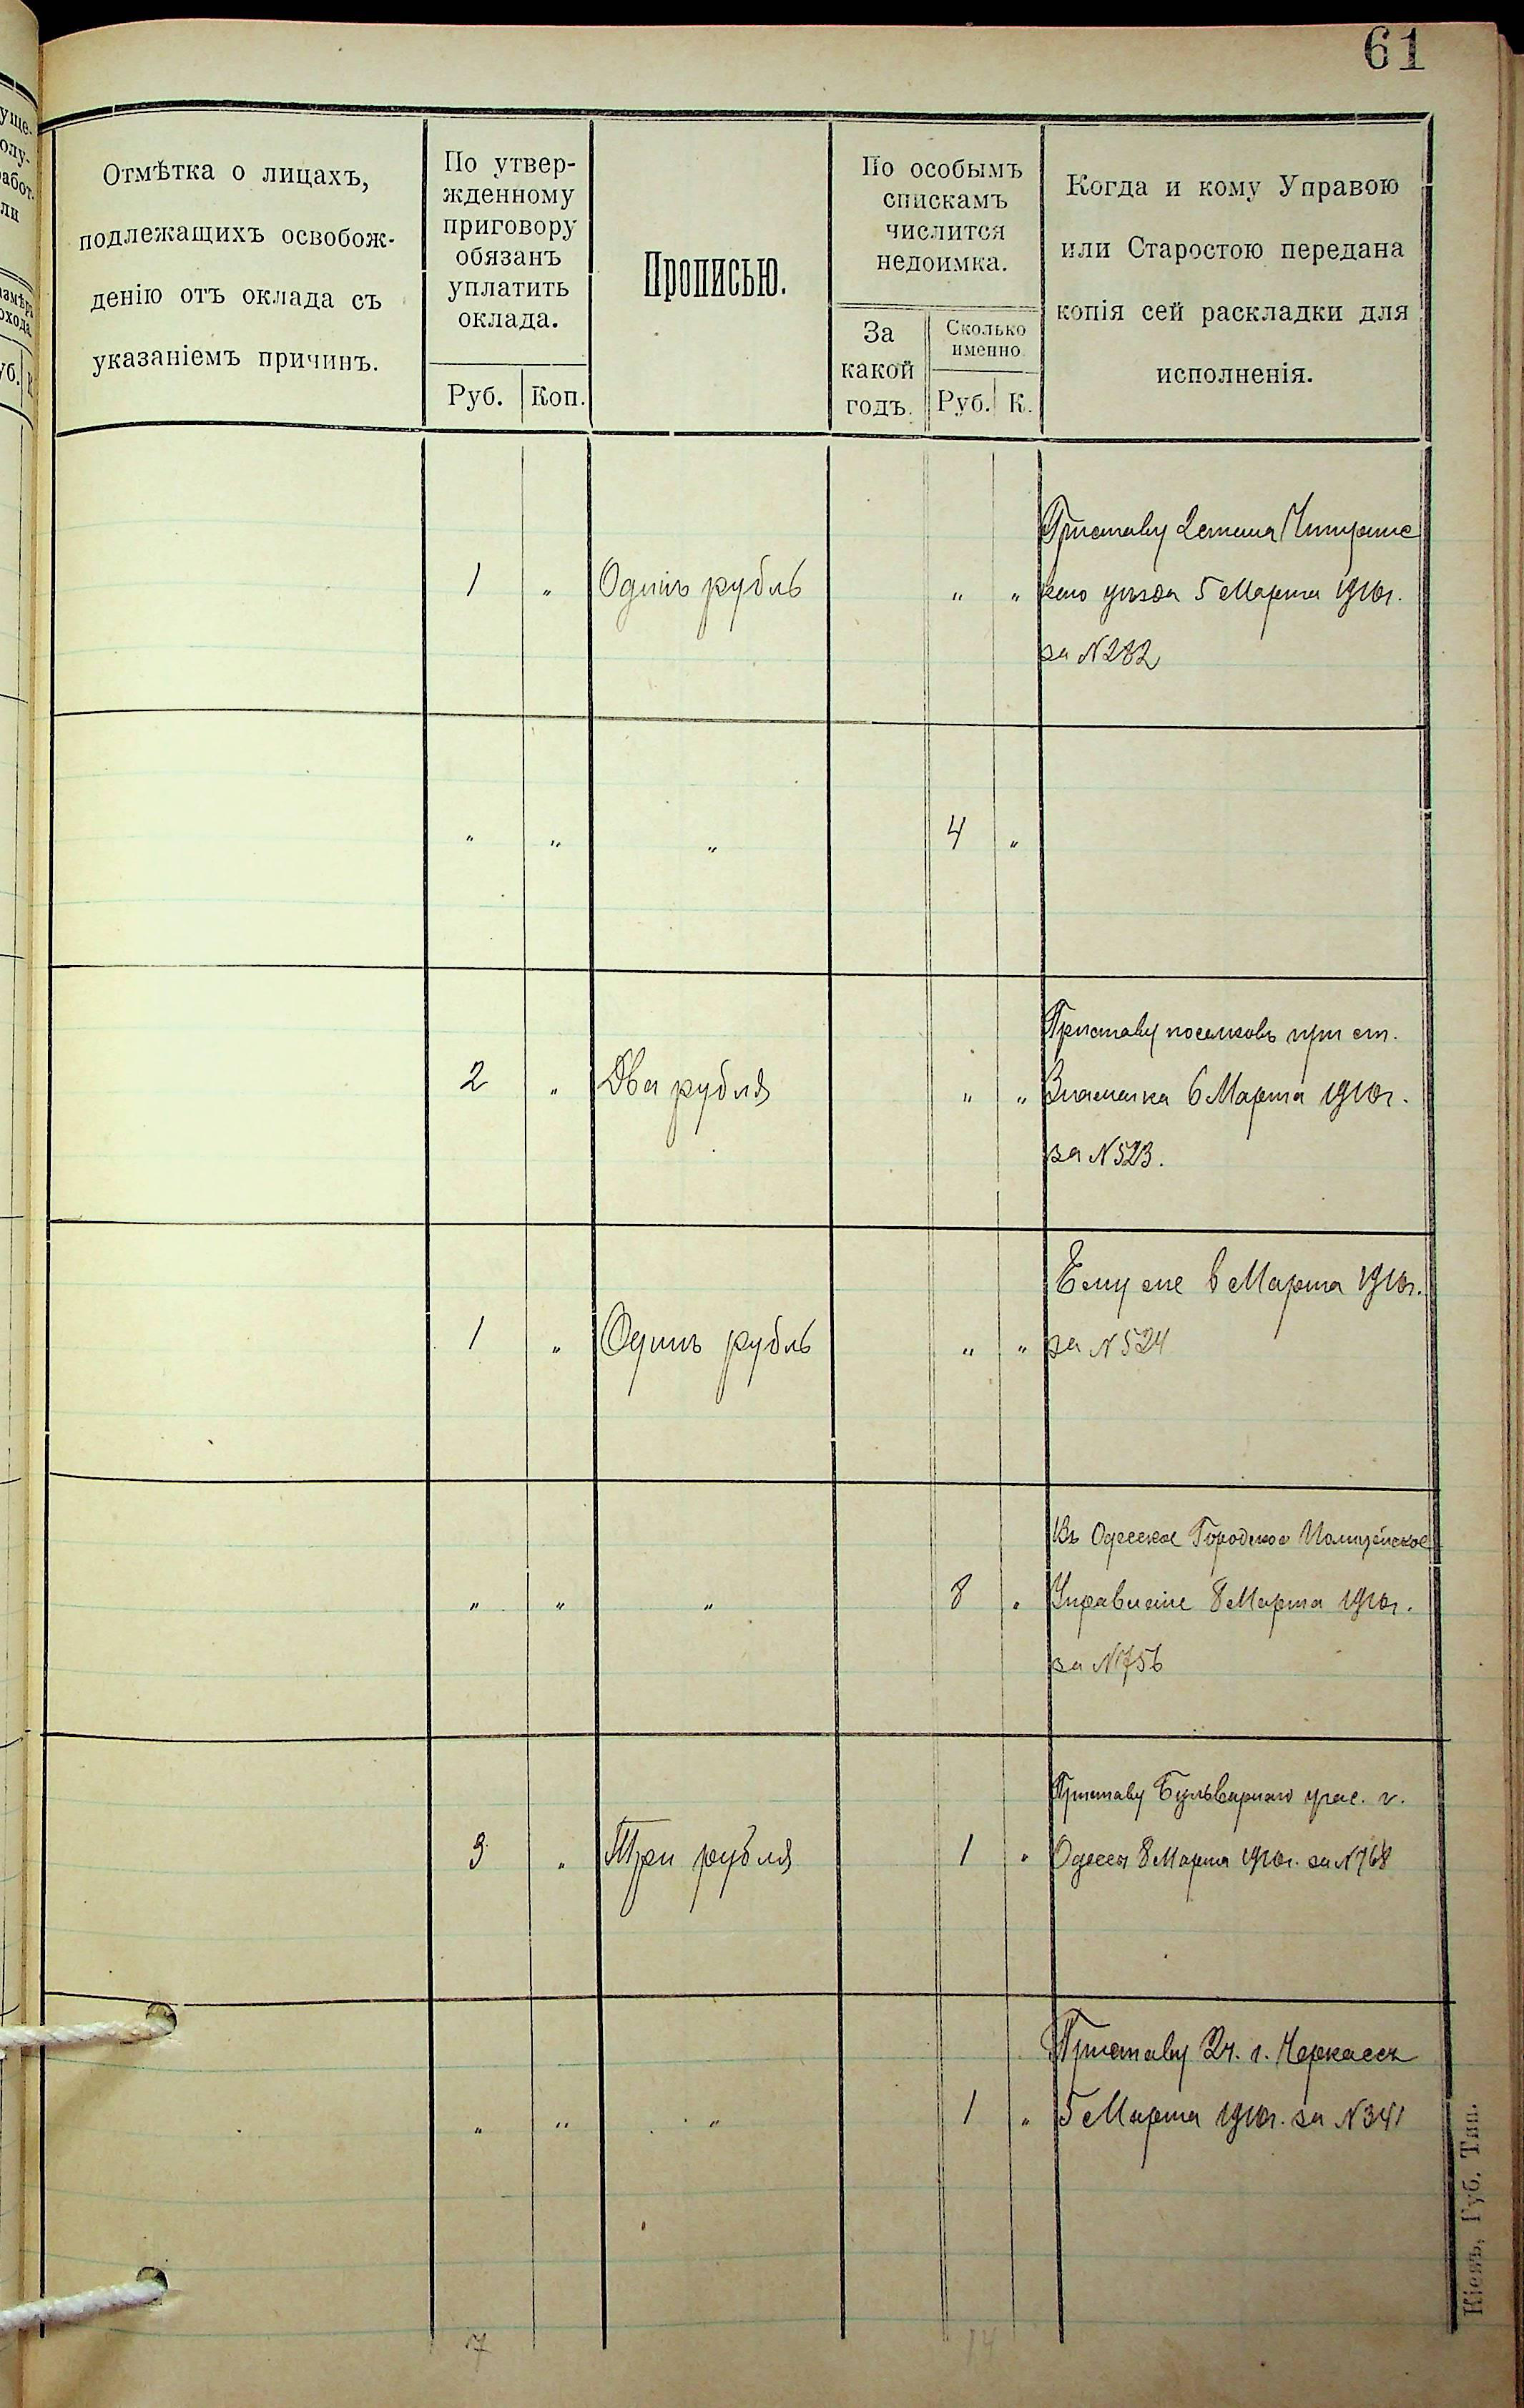 61
Отмѣтка о лицахъ,
подлежащихъ освобож-
денію отъ оклада съ
указаніемъ причинъ.
По утвер-
жденному
приговору
обязанъ
уплатить
оклада.
Руб. Коп.
Прописью.
По особымъ
спискамъ
числится
недоимка.
За
какой
годъ.
Сколько
именно
Руб. К.
Когда и кому Управою
или Старостою передана
копія сей раскладки для
исполненія.
Приставу 2 стана Чигиринс
1 " Одинъ рубль " " каго уѣзда 5 Марта 1910г.
за N 282
" " " 4 "
Приставу поселковъ при ст.
2 " Два рубля " " Знаменка 6 Марта 1910г.
за N 523.
Ему же 6 Марта 1910г.
1 " Одинъ рубль " " за N 524
Въ Одесское Городское Полицейское
" " " 8 " Управленіе 8 Марта 1910г.
за N 756
Приставу Бульварнаго учас. г.
3 " Три рубля 1 " Одессы 8 Марта 1910г. за N 768
Приставу 2ч. г. Черкассъ
" " " 1 " 5 Марта 1910г. за N 341
7 14
Кіевъ, Губ. Тип.